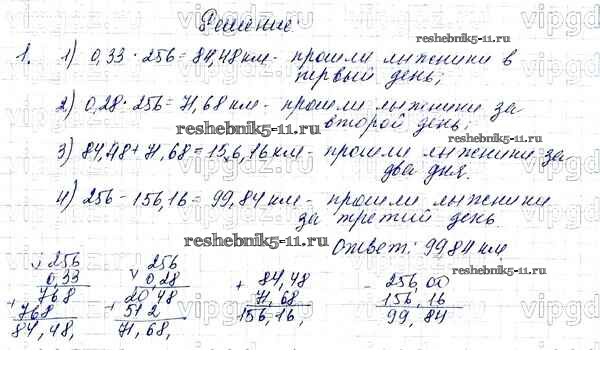 Решение
reshebnik5-11.ru
1. 1) 0,33 · 256 = 84,48 км - прошли лыжники в
первый день;
2) 0,28 · 256 = 71,68 км - прошли лыжники за
второй день;
reshebnik5-11.ru
3) 84,48 + 71,68 = 156,16 км - прошли лыжники за
два дня.
4) 256 - 156,16 = 99,84 км - прошли лыжники
за третий день.
reshebnik5-11.ru
Ответ: 99,84 км
× 256 × 256 + 84,48 - 256,00
0,33 0,28 71,68 156,16
768 2048 156,16, 99,84
+ 768 + 512
84,48, 71,68,
reshebnik5-11.ru
vipgdz